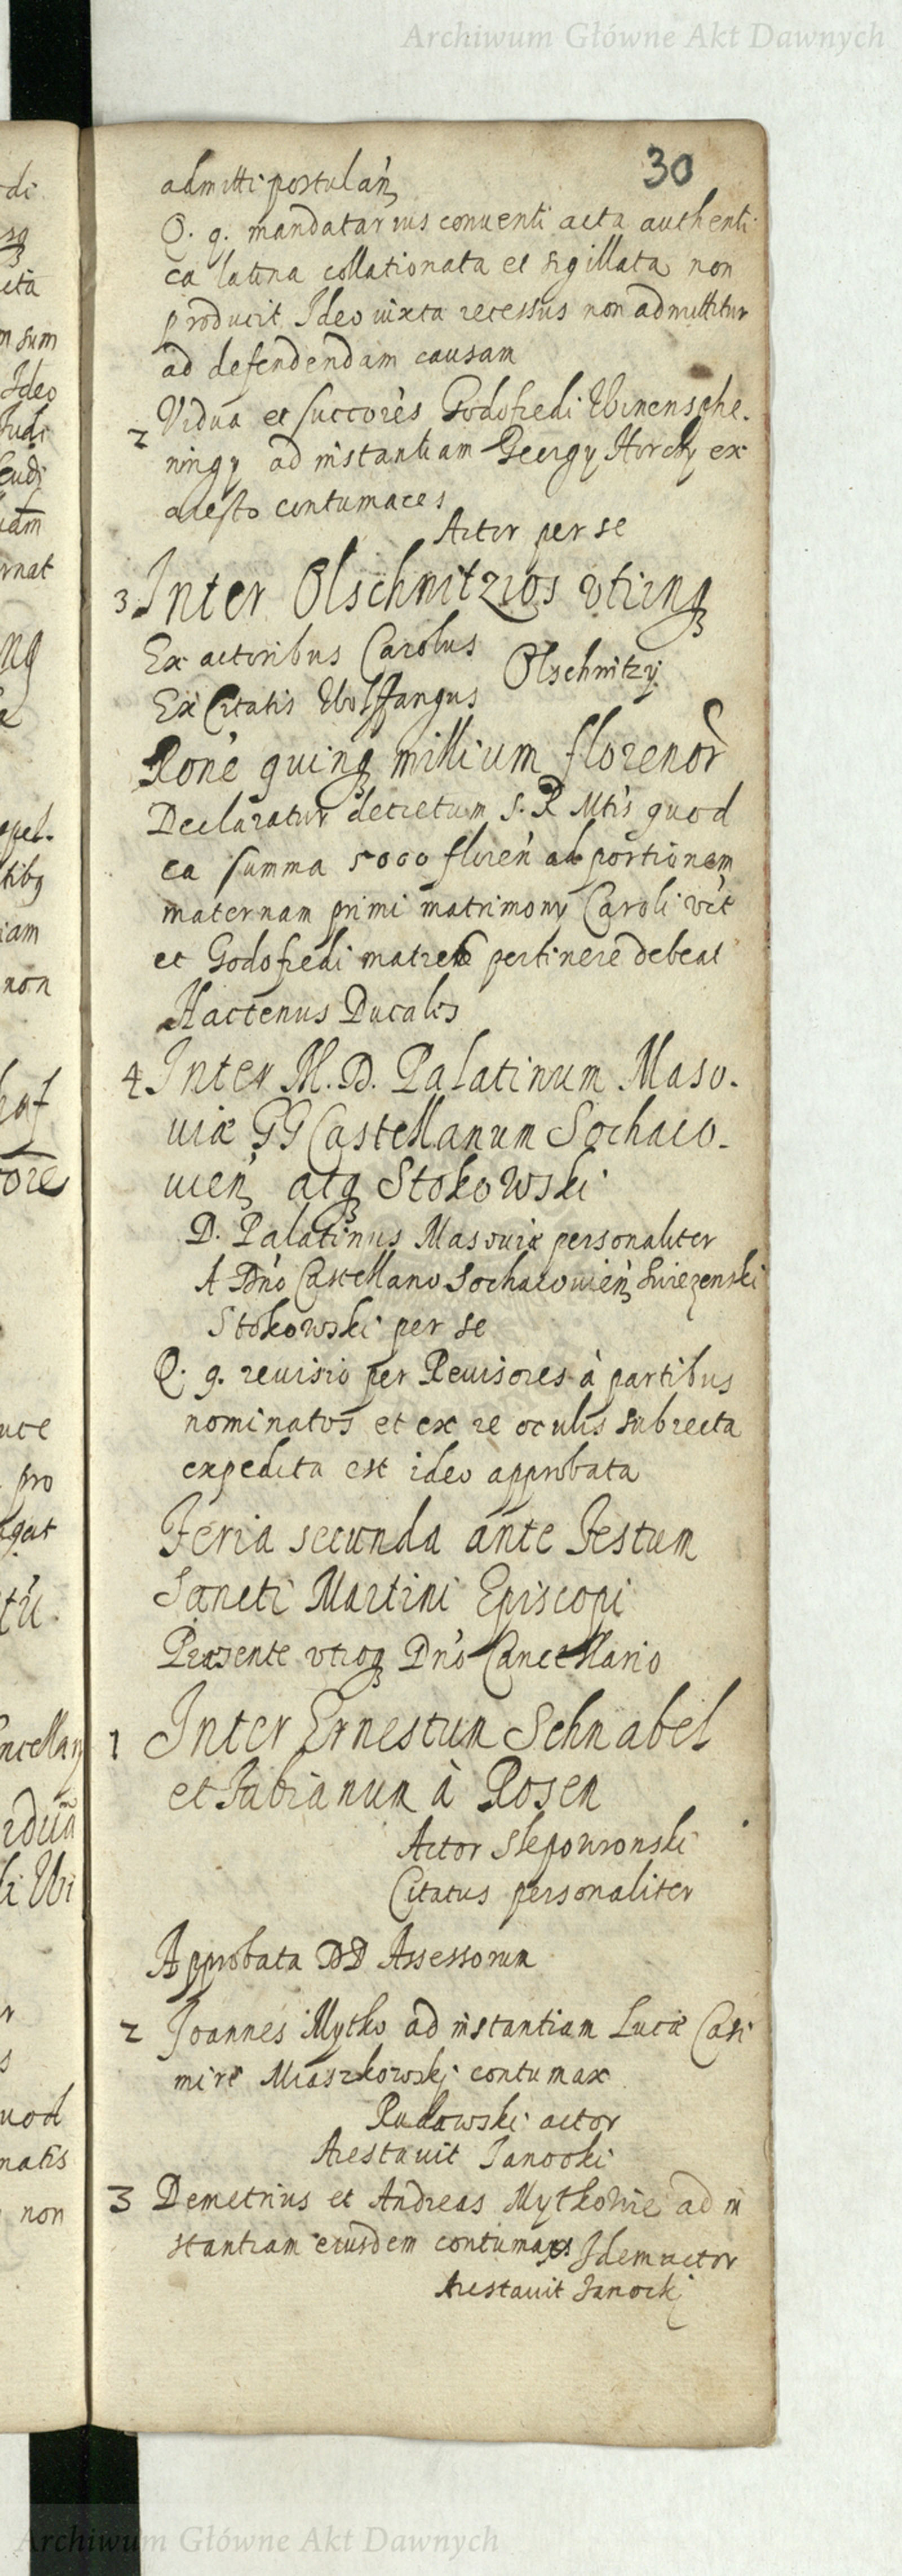 Archiwum Główne Akt Dawnych
30
admitti postulan
Q. g. mandatarius conuenti acta authenti
ca latina collationata et sigillata non
producit Ideo iuxta recessus non admittitur
ad defendendam causam
2 Vidua et succores Godofredi Winensphe.
ningy ad instantiam Georgy Horcky ex
aresto contumaces
Actor per se
3 Inter Olschnitzios vtrinq
Ex actoribus Carolus
Olschnitzy
Ex Citatis Wolffangus
Rone quinq millium florenor
Declaratur decretum S. R. Mtis quod
ea summa 5000 floren ad portionem
maternam primi matrimony Caroli
et Godofredi pertinere debeat
Hactenus Ducalis
4 Inter M. D. Palatinum Maso-
uiæ GG Castellanum Sochaco-
uien atq Stokowski
D. Palatinus Masouiæ personaliter
A Dno Castellano Sochacouien
Stokowski per se
Q. g. reuisio per Reuisores à partibus
nominatos et ex re oculis subiecta
expedita est ideo approbata
Feria secunda ante Festum
Sancti Martini Episcopi
Præsente vtroq Dno Cancellario
1 Inter Ernestum Schnabel
et Fabianum à Rosen
Actor Slepowronski
Citatus personaliter
Approbata DD Assessorum
2 Joannes Mytko ad instantiam Lucæ Casi
miri Miaszkowski contumax
Rudawski actor
Arestauit Janocki
3 Demetrius et Andreas Mytkowie ad in
stantiam eiusdem contumaces Idem actor
Arestauit Janocki
Archiwum Główne Akt Dawnych